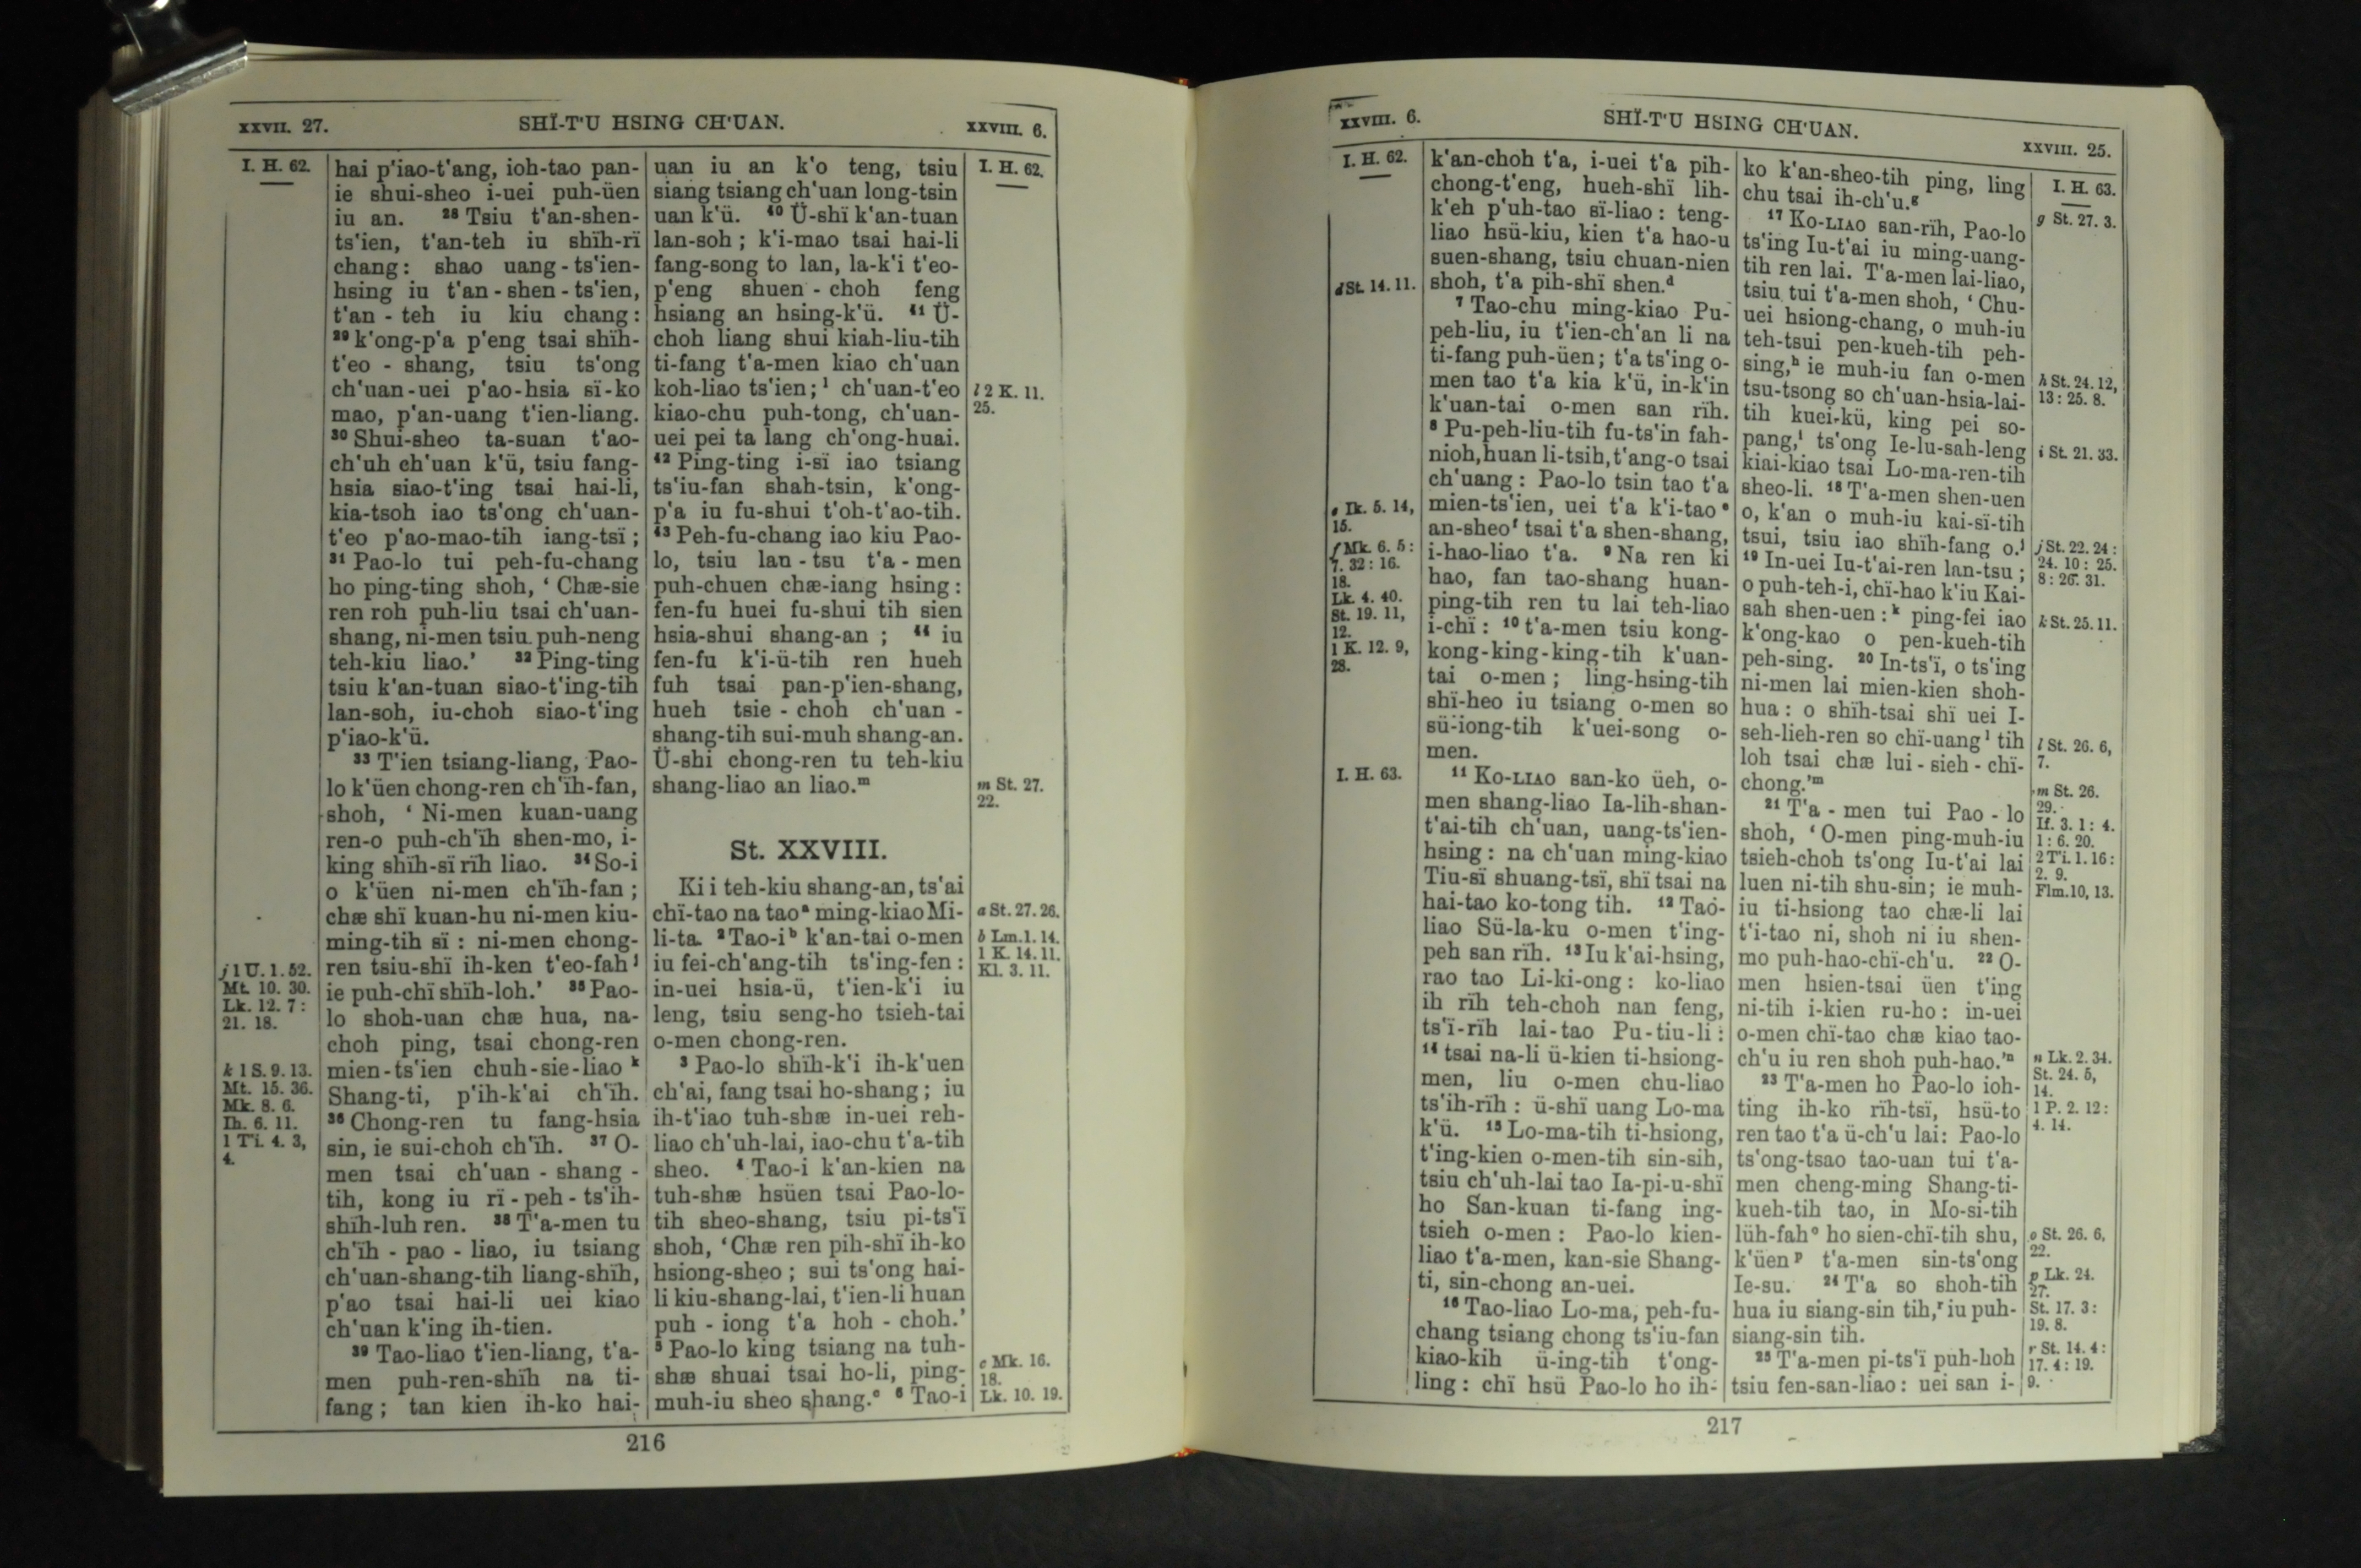 XXVII. 27.
SHÏ-T'U HSING CH'UAN.
XXVIII. 6.
I. H. 62.
hai p'iao-t'ang, ioh-tao pan-
ie shui-sheo i-uei puh-üen
iu an. 28 Tsiu t'an-shen-
ts'ien, t'an-teh iu shïh-rï
chang: shao uang-ts'ien-
hsing iu t'an-shen-ts'ien,
t'an-teh iu kiu chang:
29 k'ong-p'a p'eng tsai shïh-
t'eo-shang, tsiu ts'ong
ch'uan-uei p'ao-hsia sï-ko
mao, p'an-uang t'ien-liang.
30 Shui-sheo ta-suan t'ao-
ch'uh ch'uan k'ü, tsiu fang-
hsia siao-t'ing tsai hai-li,
kia-tsoh iao ts'ong ch'uan-
t'eo p'ao-mao-tih iang-tsï;
31 Pao-lo tui peh-fu-chang
ho ping-ting shoh, ‘ Chæ-sie
ren roh puh-liu tsai ch'uan-
shang, ni-men tsiu puh-neng
teh-kiu liao.’ 32 Ping-ting
tsiu k'an-tuan siao-t'ing-tih
lan-soh, iu-choh siao-t'ing
p'iao-k'ü.
33 T'ien tsiang-liang, Pao-
lo k'üen chong-ren ch'ïh-fan,
shoh, ‘ Ni-men kuan-uang
ren-o puh-ch'ïh shen-mo, i-
king shïh-sï rïh liao. 34 So-i
o k'üen ni-men ch'ïh-fan;
chæ shï kuan-hu ni-men kiu-
ming-tih sï: ni-men chong-
ren tsiu-shï ih-ken t'eo-fah j
ie puh-chï shïh-loh.’ 35 Pao-
lo shoh-uan chæ hua, na-
choh ping, tsai chong-ren
mien-ts'ien chuh-sie-liao k
Shang-ti, p'ih-k'ai ch'ïh.
36 Chong-ren tu fang-hsia
sin, ie sui-choh ch'ïh. 37 O-
men tsai ch'uan-shang-
tih, kong iu rï-peh-ts'ih-
shïh-luh ren. 38 T'a-men tu
ch'ïh-pao-liao, iu tsiang
ch'uan-shang-tih liang-shïh,
p'ao tsai hai-li uei kiao
ch'uan k'ing ih-tien.
39 Tao-liao t'ien-liang, t'a-
men puh-ren-shïh na ti-
fang; tan kien ih-ko hai-
j 1 U. 1. 52.
Mt. 10. 30.
Lk. 12. 7:
21. 18.
k 1 S. 9. 13.
Mt. 15. 36.
Mk. 8. 6.
Ih. 6. 11.
1 T'i. 4. 3,
4.
uan iu an k'o teng, tsiu
siang tsiang ch'uan long-tsin
uan k'ü. 40 Ü-shï k'an-tuan
lan-soh; k'i-mao tsai hai-li
fang-song to lan, la-k'i t'eo-
p'eng shuen-choh feng
hsiang an hsing-k'ü. 41 Ü-
choh liang shui kiah-liu-tih
ti-fang t'a-men kiao ch'uan
koh-liao ts'ien; l ch'uan-t'eo
kiao-chu puh-tong, ch'uan-
uei pei ta lang ch'ong-huai.
42 Ping-ting i-sï iao tsiang
ts'iu-fan shah-tsin, k'ong-
p'a iu fu-shui t'oh-t'ao-tih.
43 Peh-fu-chang iao kiu Pao-
lo, tsiu lan-tsu t'a-men
puh-chuen chæ-iang hsing:
fen-fu huei fu-shui tih sien
hsia-shui shang-an; 44 iu
fen-fu k'i-ü-tih ren hueh
fuh tsai pan-p'ien-shang,
hueh tsie-choh ch'uan-
shang-tih sui-muh shang-an.
Ü-shi chong-ren tu teh-kiu
shang-liao an liao. m
St. XXVIII.
Ki i teh-kiu shang-an, ts'ai
chï-tao na tao a ming-kiao Mi-
li-ta. 2 Tao-i b k'an-tai o-men
iu fei-ch'ang-tih ts'ing-fen:
in-uei hsia-ü, t'ien-k'i iu
leng, tsiu seng-ho tsieh-tai
o-men chong-ren.
3 Pao-lo shïh-k'i ih-k'uen
ch'ai, fang tsai ho-shang; iu
ih-t'iao tuh-shæ in-uei reh-
liao ch'uh-lai, iao-chu t'a-tih
sheo. 4 Tao-i k'an-kien na
tuh-shæ hsüen tsai Pao-lo-
tih sheo-shang, tsiu pi-ts'ï
shoh, ‘Chæ ren pih-shï ih-ko
hsiong-sheo; sui ts'ong hai-
li kiu-shang-lai, t'ien-li huan
puh-iong t'a hoh-choh.’
5 Pao-lo king tsiang na tuh-
shæ shuai tsai ho-li, ping-
muh-iu sheo shang. c 6 Tao-i
I. H. 62.
l 2 K. 11.
25.
m St. 27.
22.
a St. 27. 26.
b Lm. 1. 14.
1 K. 14. 11.
Kl. 3. 11.
c Mk. 16.
18.
Lk. 10. 19.
216
XXVIII. 6.
SHÏ-T'U HSING CH'UAN.
XXVIII. 25.
I. H. 62.
d St. 14. 11.
e Ik. 5. 14,
15.
f Mk. 6. 5:
7. 32: 16.
18.
Lk. 4. 40.
St. 19. 11,
12.
1 K. 12. 9,
28.
I. H. 63.
k'an-choh t'a, i-uei t'a pih-
chong-t'eng, hueh-shï lih-
k'eh p'uh-tao sï-liao: teng-
liao hsü-kiu, kien t'a hao-u
suen-shang, tsiu chuan-nien
shoh, t'a pih-shï shen. d
7 Tao-chu ming-kiao Pu-
peh-liu, iu t'ien-ch'an li na
ti-fang puh-üen; t'a ts'ing o-
men tao t'a kia k'ü, in-k'in
k'uan-tai o-men san rïh.
8 Pu-peh-liu-tih fu-ts'in fah-
nioh, huan li-tsih, t'ang-o tsai
ch'uang: Pao-lo tsin tao t'a
mien-ts'ien, uei t'a k'i-tao e
an-sheo f tsai t'a shen-shang,
i-hao-liao t'a. 9 Na ren ki
hao, fan tao-shang huan-
ping-tih ren tu lai teh-liao
i-chï: 10 t'a-men tsiu kong-
kong-king-king-tih k'uan-
tai o-men; ling-hsing-tih
shï-heo iu tsiang o-men so
sü-iong-tih k'uei-song o-
men.
11 Ko-LIAO san-ko üeh, o-
men shang-liao Ia-lih-shan-
t'ai-tih ch'uan, uang-ts'ien-
hsing: na ch'uan ming-kiao
Tiu-sï shuang-tsï, shï tsai na
hai-tao ko-tong tih. 12 Tao-
liao Sü-la-ku o-men t'ing-
peh san rïh. 13 Iu k'ai-hsing,
rao tao Li-ki-ong: ko-liao
ih rïh teh-choh nan feng,
ts'ï-rïh lai-tao Pu-tiu-li:
14 tsai na-li ü-kien ti-hsiong-
men, liu o-men chu-liao
ts'ih-rïh: ü-shï uang Lo-ma
k'ü. 15 Lo-ma-tih ti-hsiong,
t'ing-kien o-men-tih sin-sih,
tsiu ch'uh-lai tao Ia-pi-u-shï
ho San-kuan ti-fang ing-
tsieh o-men: Pao-lo kien-
liao t'a-men, kan-sie Shang-
ti, sin-chong an-uei.
16 Tao-liao Lo-ma, peh-fu-
chang tsiang chong ts'iu-fan
kiao-kih ü-ing-tih t'ong-
ling: chï hsü Pao-lo ho ih-
ko k'an-sheo-tih ping, ling
chu tsai ih-ch'u. g
17 Ko-LIAO san-rïh, Pao-lo
ts'ing Iu-t'ai iu ming-uang-
tih ren lai. T'a-men lai-liao,
tsiu tui t'a-men shoh, ‘ Chu-
uei hsiong-chang, o muh-iu
teh-tsui pen-kueh-tih peh-
sing, h ie muh-iu fan o-men
tsu-tsong so ch'uan-hsia-lai-
tih kuei-kü, king pei so-
pang, i ts'ong Ie-lu-sah-leng
kiai-kiao tsai Lo-ma-ren-tih
sheo-li. 18 T'a-men shen-uen
o, k'an o muh-iu kai-sï-tih
tsui, tsiu iao shïh-fang o. j
19 In-uei Iu-t'ai-ren lan-tsu;
o puh-teh-i, chï-hao k'iu Kai-
sah shen-uen: k ping-fei iao
k'ong-kao o pen-kueh-tih
peh-sing. 20 In-ts'ï, o ts'ing
ni-men lai mien-kien shoh-
hua: o shïh-tsai shï uei I-
seh-lieh-ren so chï-uang l tih
loh tsai chæ lui-sieh-chï-
chong.’ m
21 T'a-men tui Pao-lo
shoh, ‘O-men ping-muh-iu
tsieh-choh ts'ong Iu-t'ai lai
luen ni-tih shu-sin; ie muh-
iu ti-hsiong tao chæ-li lai
t'i-tao ni, shoh ni iu shen-
mo puh-hao-chï-ch'u. 22 O-
men hsien-tsai üen t'ing
ni-tih i-kien ru-ho: in-uei
o-men chï-tao chæ kiao tao-
ch'u iu ren shoh puh-hao.’ n
23 T'a-men ho Pao-lo ioh-
ting ih-ko rïh-tsï, hsü-to
ren tao t'a ü-ch'u lai: Pao-lo
ts'ong-tsao tao-uan tui t'a-
men cheng-ming Shang-ti-
kueh-tih tao, in Mo-si-tih
lüh-fah o ho sien-chï-tih shu,
k'üen p t'a-men sin-ts'ong
Ie-su. 24 T'a so shoh-tih
hua iu siang-sin tih, r iu puh-
siang-sin tih.
25 T'a-men pi-ts'ï puh-hoh
tsiu fen-san-liao: uei san i-
I. H. 63.
g St. 27. 3.
h St. 24. 12,
13: 25. 8.
i St. 21. 33.
j St. 22. 24:
24. 10: 25.
8: 26. 31.
k St. 25. 11.
l St. 26. 6,
7.
m St. 26.
29.
If. 3. 1: 4.
1: 6. 20.
2 T'i. 1. 16:
2. 9.
Flm. 10, 13.
n Lk. 2. 34.
St. 24. 5,
14.
1 P. 2. 12:
4. 14.
o St. 26. 6,
22.
p Lk. 24.
27.
St. 17. 3:
19. 8.
r St. 14. 4:
17. 4: 19.
9.
217